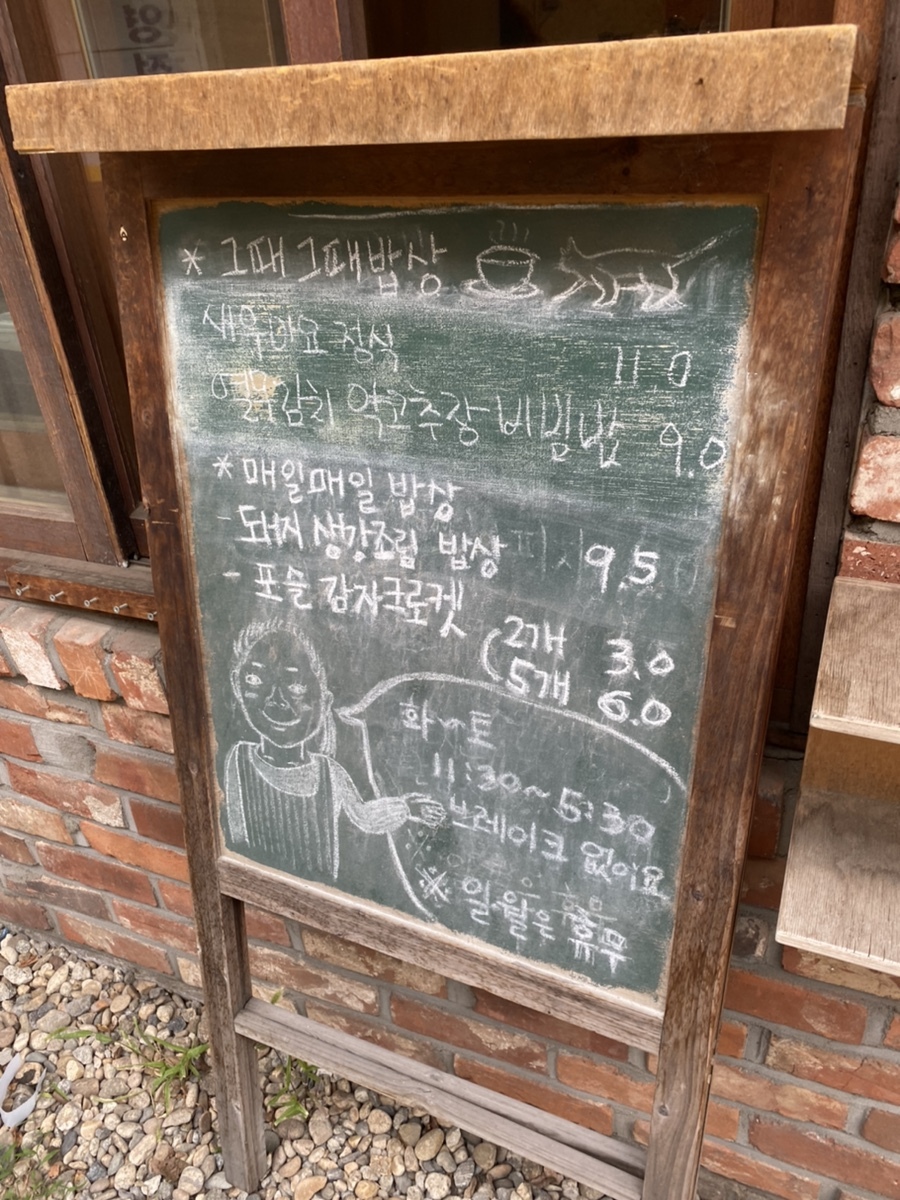 * 그때 그때밥상
새우마요 정식 11.0
열무김치 약고추장 비빔밥 9.0
* 매일매일 밥상
- 돼지 생강조림 밥상 9.5
- 포슬 감자크로켓
2개 3.0
5개 6.0
화~토
11:30~5:30
브레이크 없이요
※ 일월은 휴무